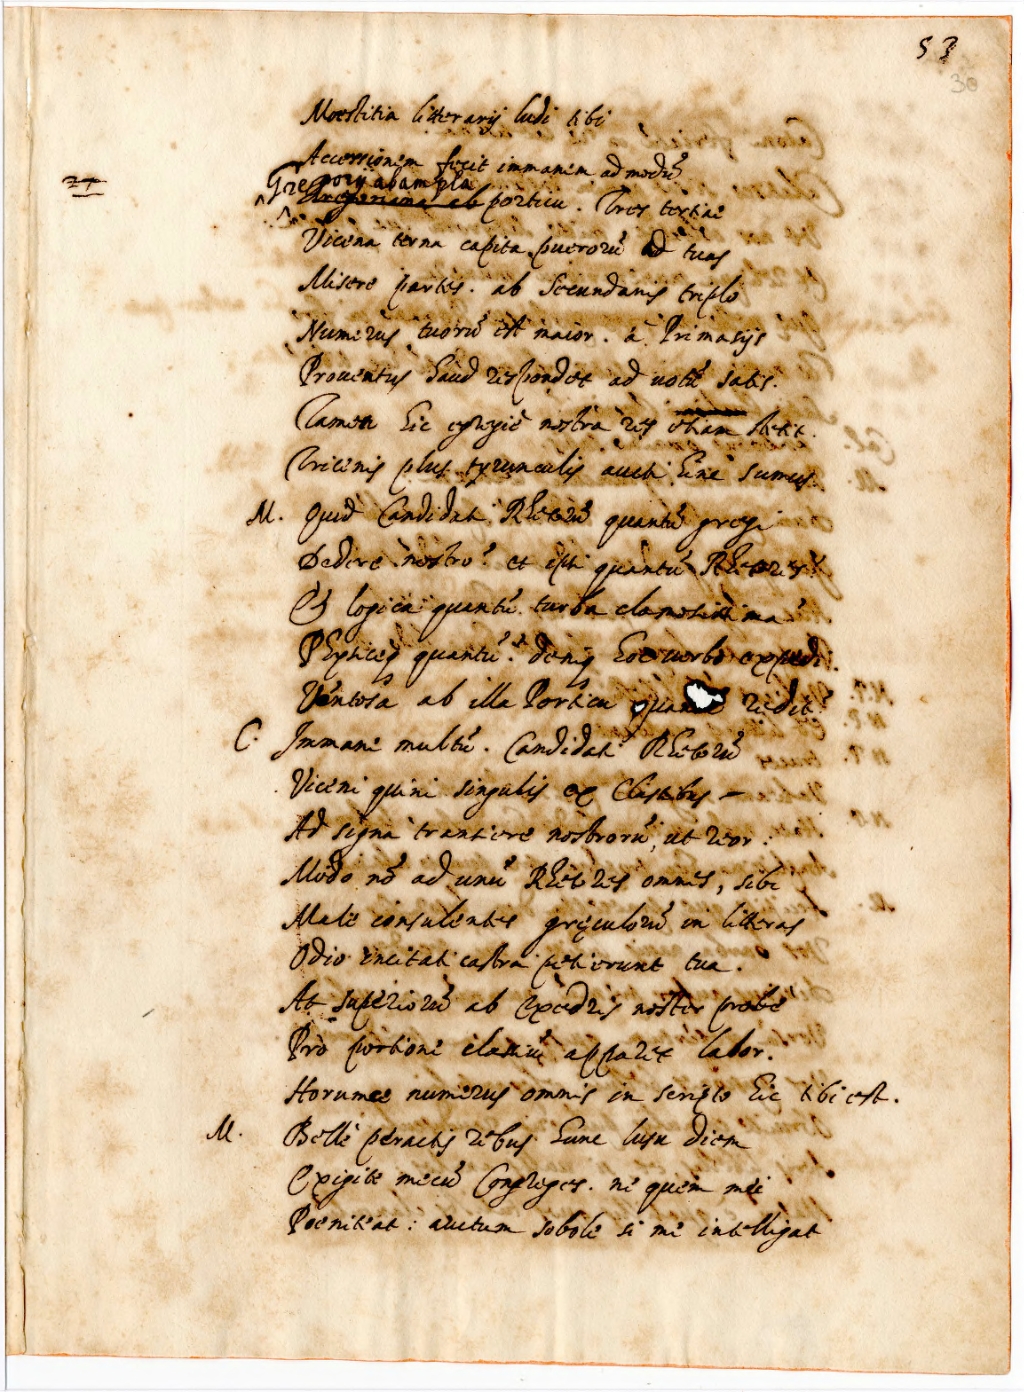 53
30
Moestitia litterarij ludi tibi
Accessionem fecit immanem ad modũ
Gregorij ab ampla
porticu. Tres tertiae
Vicena terna capita puerorũ ad tuas
Misere partes. ab Secundanis triplo
Numerus tuorũ est maior. à Primasijs
Prouentus haud respondet ad uotũ satis.
Tamen hic egregiè nostra res etiam stetit.
Tricenis plus tyrunculis aucti hinc sumus.
M. Quid Candidati Rhetorũ quantũ gregi
Dedere nostro? et ipsi quantũ Rhetores?
Et logica quantũ turba clamosissima
Physicesq quantũ? deniq hoc uerbo expedi.
Ventosa ab illa Porticu redit?
C. Immane multũ. Candidati Rhetorũ
Viceni quini singulis ex Classibus
Ad signa transiere nostrorũ, ut reor.
Modo nõ ad unũ Rhetores omnes, sibi
Male consulentes gręculorũ in litteras
Odio incitati castra petierunt tua.
At superiorũ ab exędris noster probè
Pro portione classiũ apparet labor.
Horumce numerus omnis in scripto hic tibi est.
M. Bellè peractis rebus hunc lusu diem
Exigite mecũ Congreges. ne quem mei
Poeniteat: auctum sobole si me intelligat